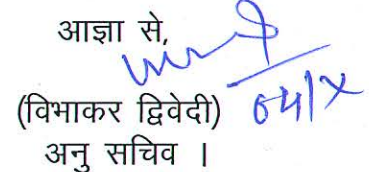 आज्ञा से,
(विभाकर द्विवेदी)
अनु सचिव ।